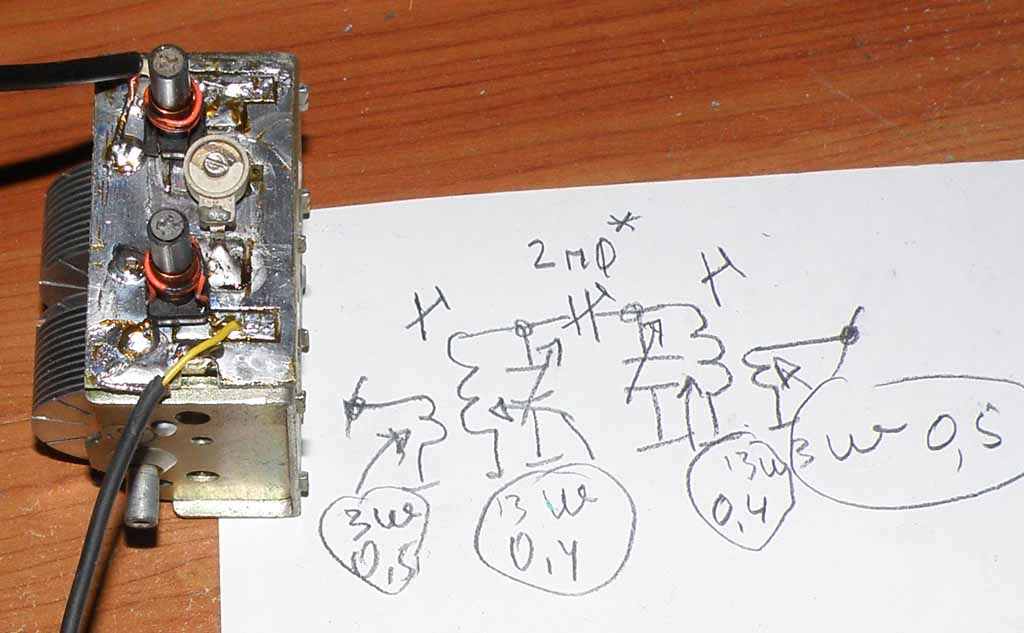 2 пф*
3 w
0,5
13 w
0,4
13 w
0,4
3 w 0,5